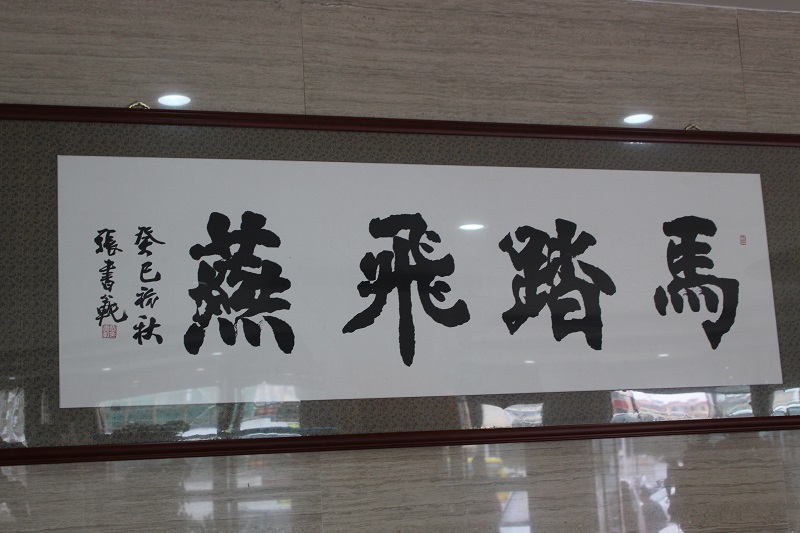 馬踏飛燕
癸巳初秋
張書範